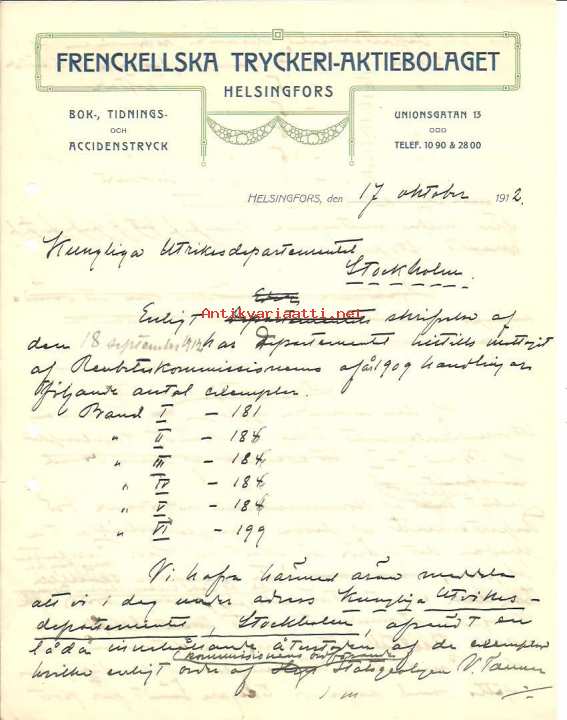 FRENCKELLSKA TRYCKERI-AKTIEBOLAGET
HELSINGFORS
BOK-, TIDNINGS-
OCH
ACCIDENSTRYCK
UNIONSGATAN 13
TELEF. 10 90 & 28 00
HELSINGFORS, den 17 oktober 1912.
Kungliga Utrikesdepartementet
Stockholm.
Antikvariaatti.net
Enligt Departementets skrifvelse af
den 18 september 1912 har Departementet hittills mottagit
af kommissionens af år 1909 handlingar
följande antal exemplar.
Band I – 181
" II – 184
" III – 184
" IV – 184
" V – 184
" VI – 199
Vi hafva härmed äran meddela
att vi i dag under adress Kungliga Utrikes-
departementet, Stockholm, afsändt en
låda innehållande återstoden af de exemplar
kommissionens ordförande
hvilka enligt order af Statsgeologen V. Tanner